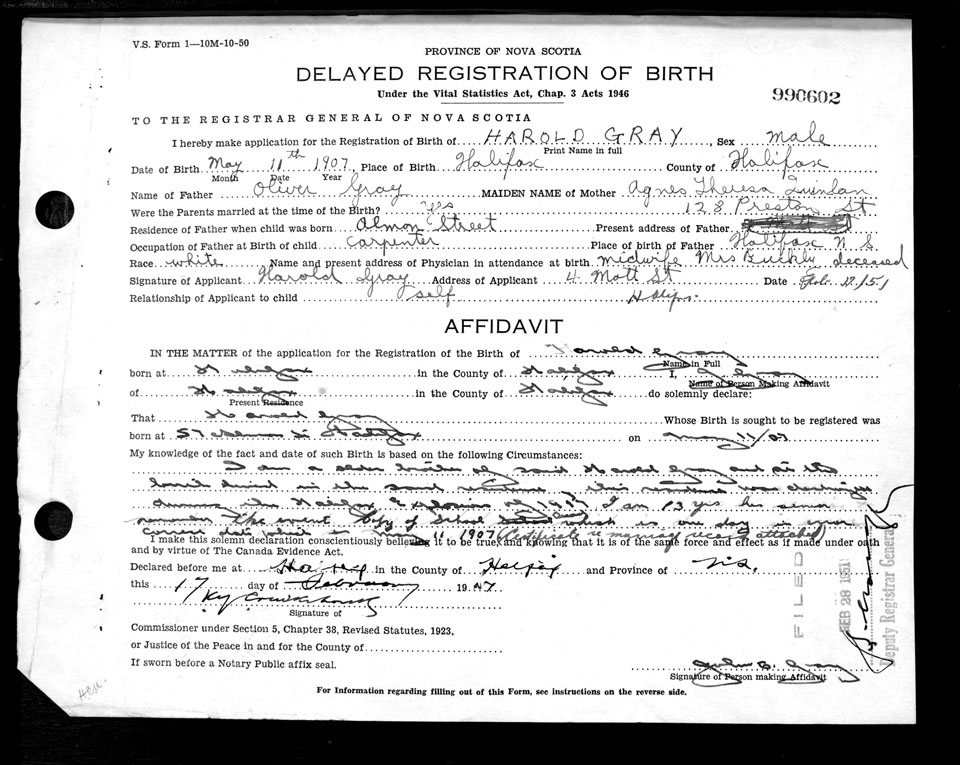 V.S. Form 1—10M-10-50
PROVINCE OF NOVA SCOTIA
DELAYED REGISTRATION OF BIRTH
Under the Vital Statistics Act, Chap. 3 Acts 1946
990602
TO THE REGISTRAR GENERAL OF NOVA SCOTIA
I hereby make application for the Registration of Birth of HAROLD GRAY, Sex male
Print Name in full
Date of Birth May 11th 1907, Place of Birth Halifax County of Halifax
Month Date Year
Name of Father Oliver Gray MAIDEN NAME of Mother Agnes Theresa Quinlan
Were the Parents married at the time of the Birth? yes 128 Preston St
Residence of Father when child was born Almon Street Present address of Father
Occupation of Father at Birth of child Carpenter Place of birth of Father Halifax N. S.
Race white Name and present address of Physician in attendance at birth midwife Mrs Buckly deceased
Signature of Applicant Harold Gray Address of Applicant 4 Mott St Date
Relationship of Applicant to child self Halifax
AFFIDAVIT
IN THE MATTER of the application for the Registration of the Birth of Harold Gray
Name in Full
born at Halifax in the County of Halifax I, Gray
Name of Person Making Affidavit
of Halifax in the County of Halifax do solemnly declare:
Present Residence
That Harold Gray Whose Birth is sought to be registered was
born at 57 Almon St Halifax on May 11/07
My knowledge of the fact and date of such Birth is based on the following Circumstances:
I am a older brother of said Harold Gray and at the
in the said residence, this residence was destroyed
the Halifax Explosion of 1917 I am 13 yrs his senior
remember the event Copy of School which is one day in error
Correct date being May 11 1907 (Certificate is marriage record attached)
I make this solemn declaration conscientiously believing it to be true, and knowing that it is of the same force and effect as if made under oath
and by virtue of The Canada Evidence Act.
Declared before me at Halifax in the County of Halifax and Province of N.S.
this 17 day of February 19
Signature of
Commissioner under Section 5, Chapter 38, Revised Statutes, 1923,
or Justice of the Peace in and for the County of
If sworn before a Notary Public affix seal.
John B. Gray
Signature of Person making Affidavit
For Information regarding filling out of this Form, see instructions on the reverse side.
FILED
FEB 28 1951
Deputy Registrar General